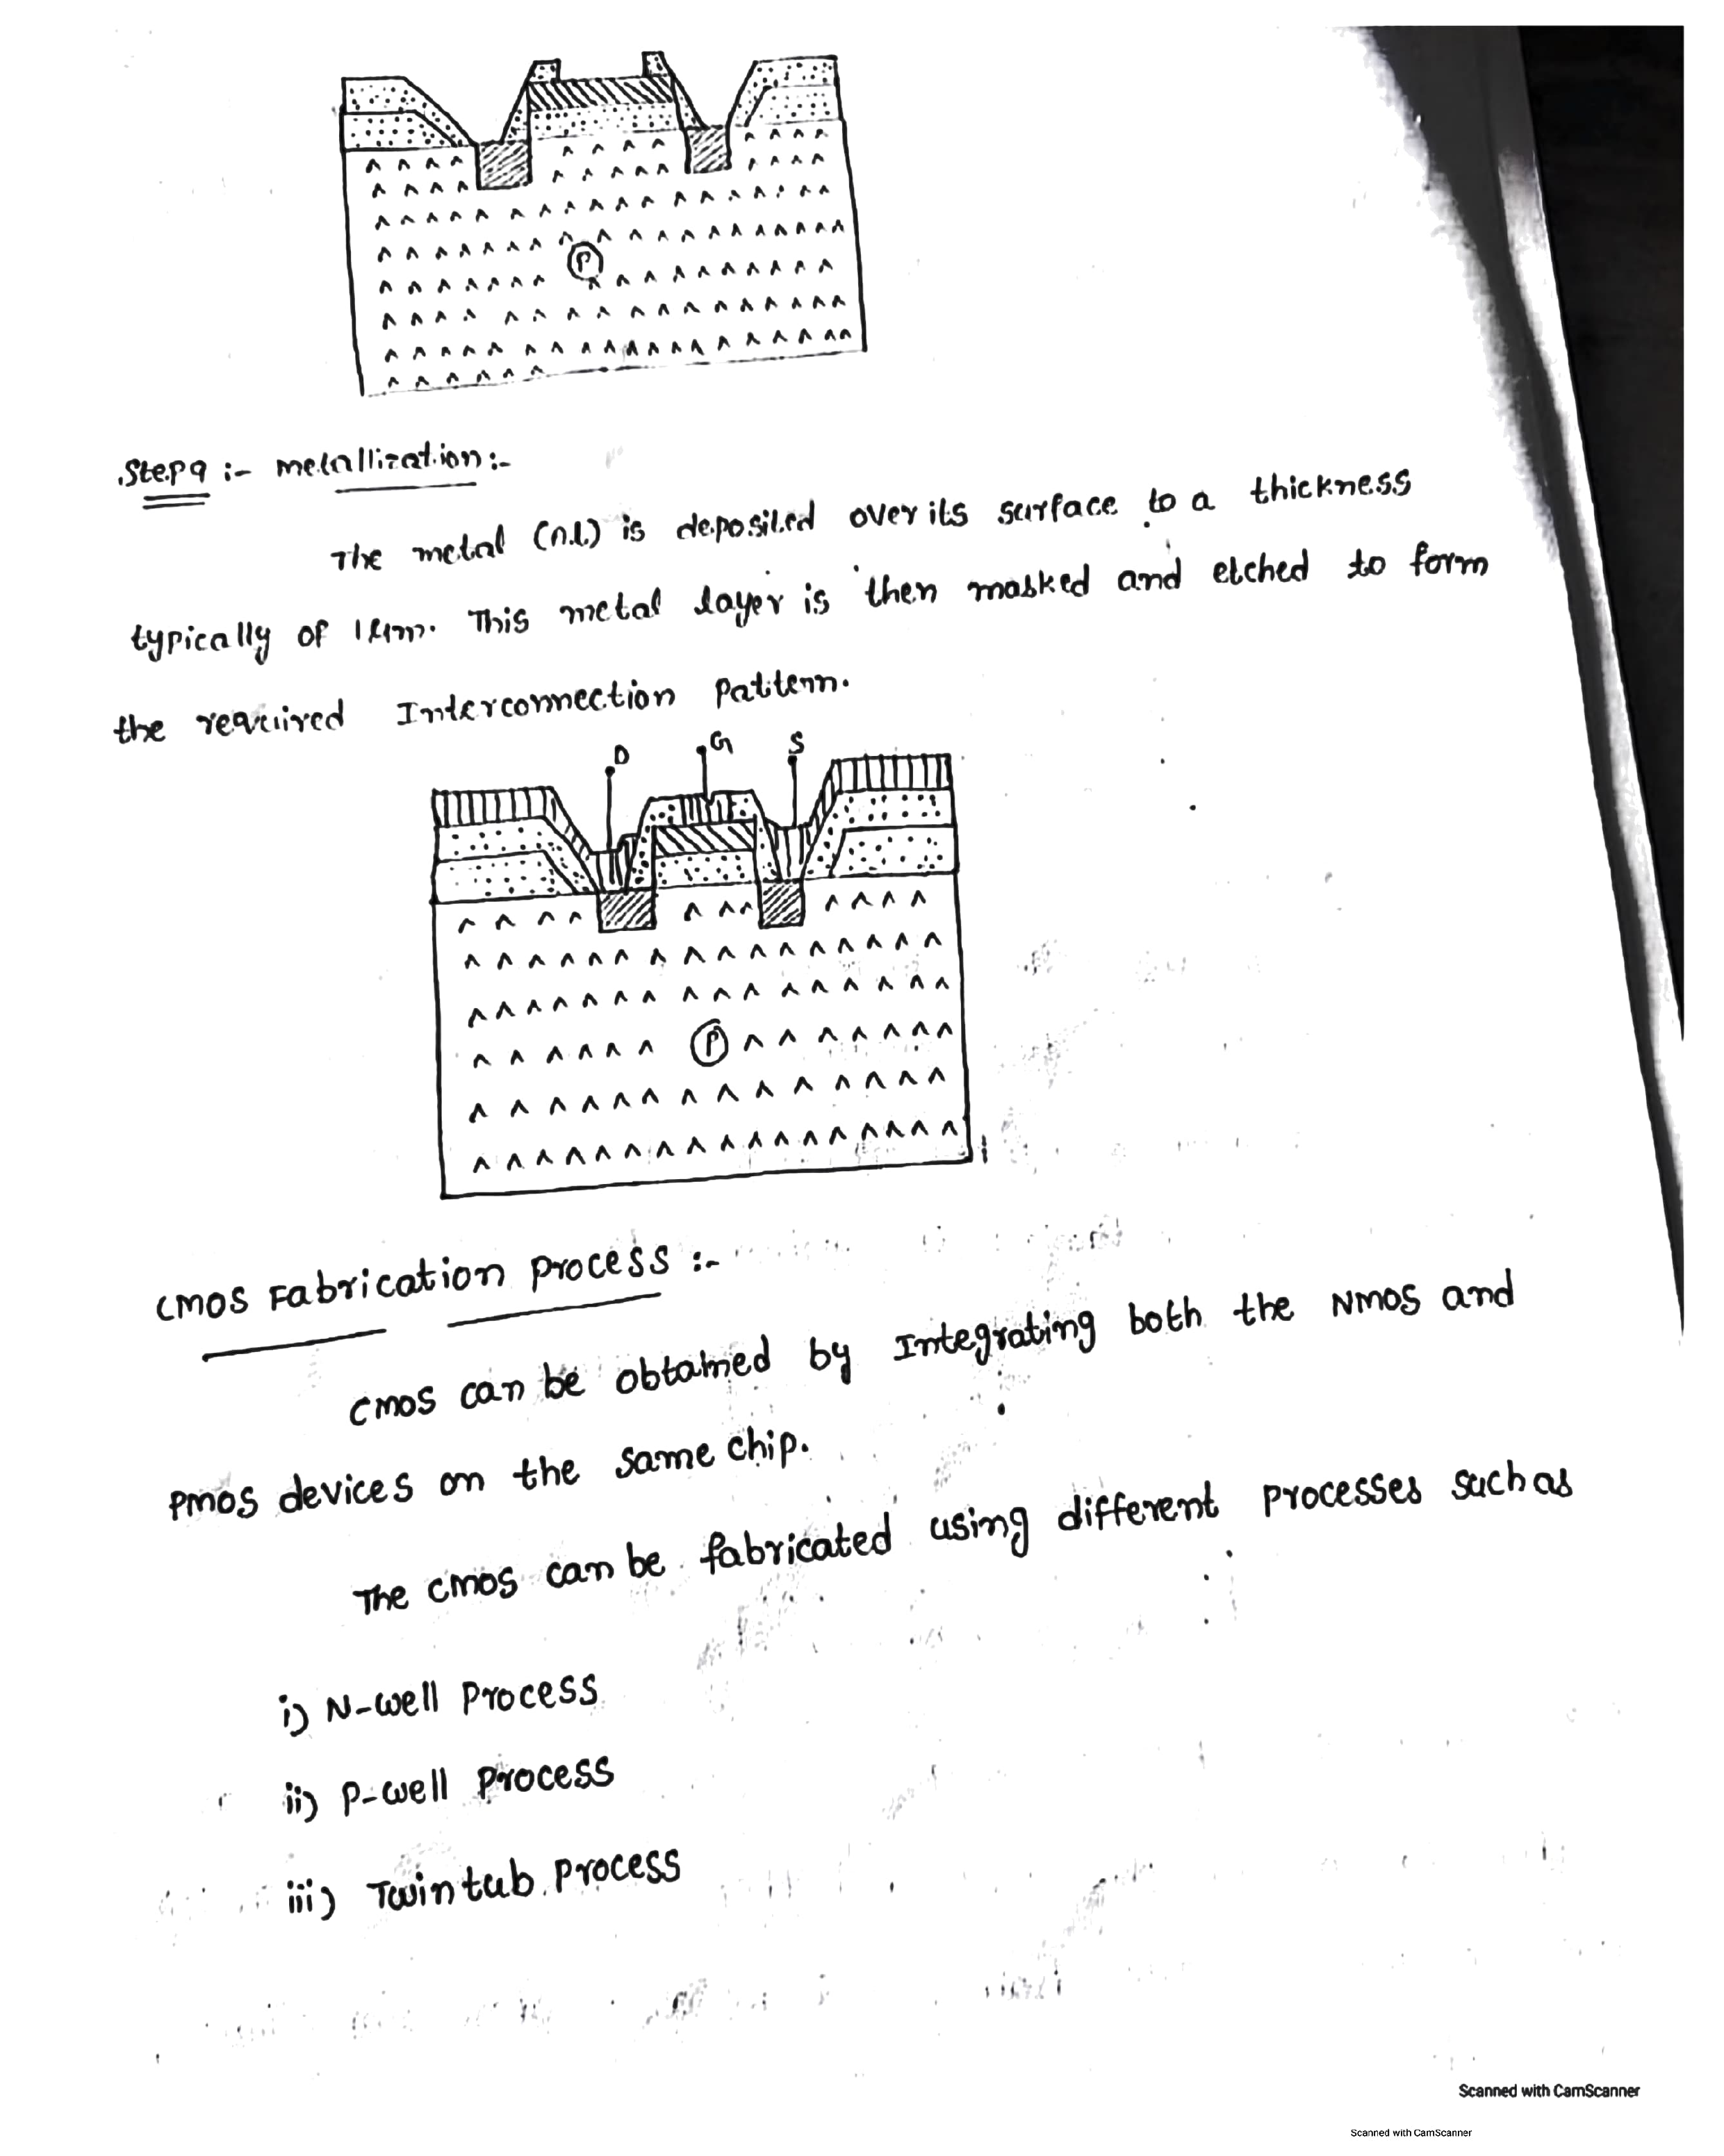 P
Step 9 :- metallization :-
The metal (Al) is deposited over its surface to a thickness
typically of 1 μm. This metal layer is then masked and etched to form
the required Interconnection Pattern.
D G S
P
CMOS Fabrication process :-
CMOS can be obtained by Integrating both the NMOS and
PMOS devices on the same chip.
The CMOS can be fabricated using different processes such as
i) N-well Process
ii) P-well Process
iii) Twin tub Process
Scanned with CamScanner
Scanned with CamScanner